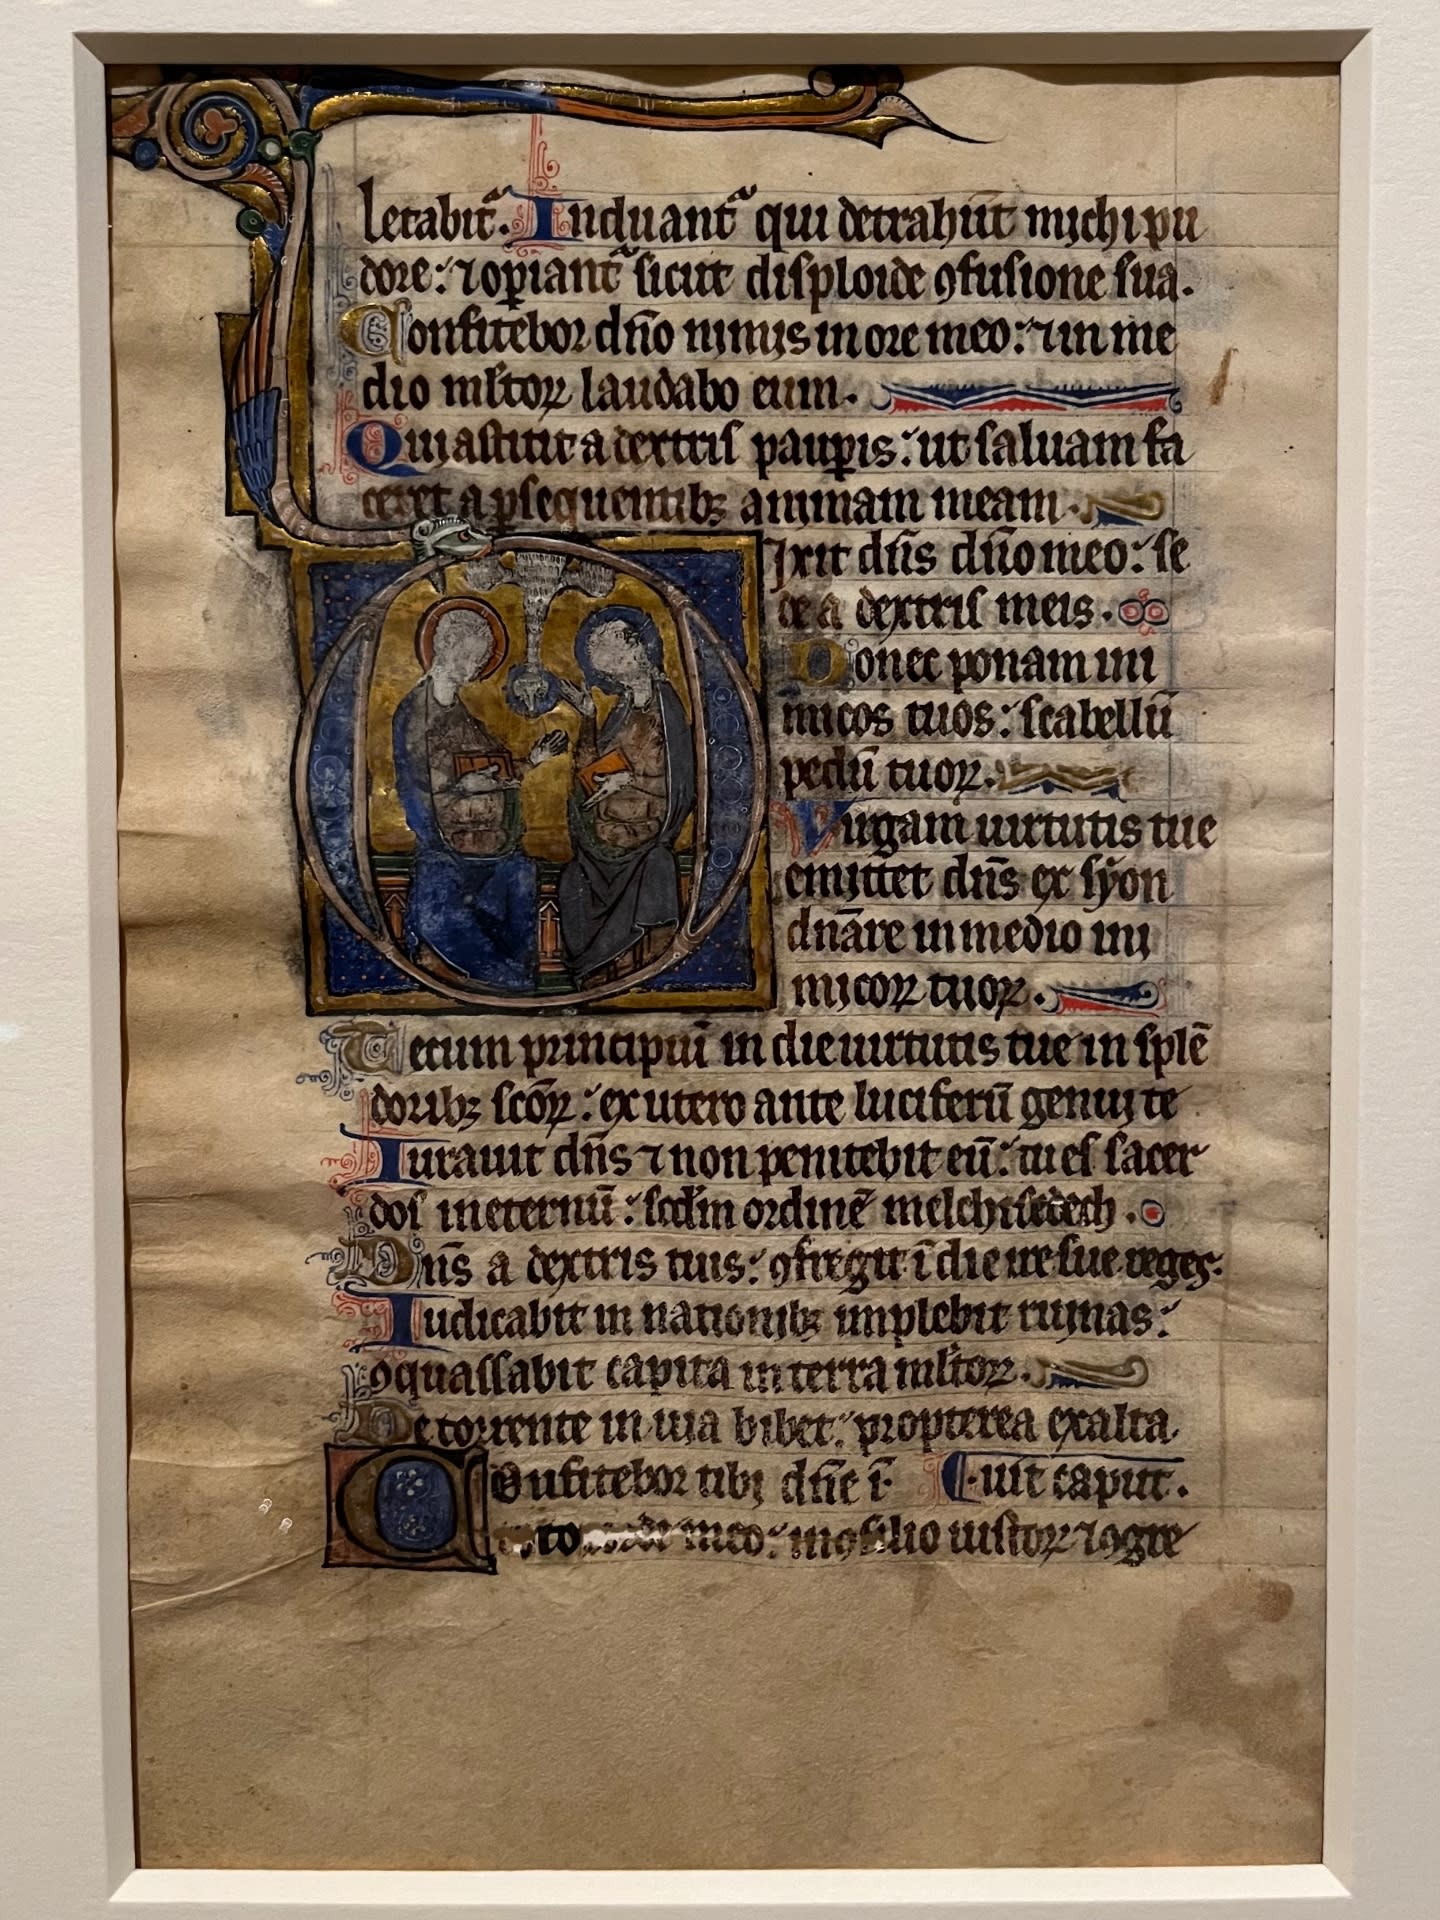 letabit᷑. Induant᷑ qui detrahūt michi pu
dore: ⁊ opiant᷑ sicut disploide ꝯfusione sua.
Confitebor dn̄o nimijs in ore meo: ⁊ in me
dio ml̄toꝝ laudabo eum.
Qui astitit a dextris paupis: ut saluam fa
ceret a psequentibꝫ animam meam.
Dixit dn̄s dn̄o meo: se
de a dextris meis.
Donec ponam ini
micos tuos: scabellū
pedū tuoꝝ.
Virgam uirtutis tue
emittet dn̄s ex syon
dn̄are in medio ini
micoꝝ tuoꝝ.
Tecum principiū in die uirtutis tue in splē
doribꝫ sc̄oꝝ: ex utero ante luciferū genui te
Iurauit dn̄s ⁊ non penitebit eū: tu es sacer
dos in eternū: scd̄m ordinē melchisedech.
Dn̄s a dextris tuis: ꝯfregit ī die ire sue reges.
Iudicabit in nationibꝫ implebit ruinas:
ꝯquassabit capita in terra ml̄toꝝ.
De torrente in uia bibet: propterea exalta
Confitebor tibi dn̄e ī uit caput.
to meo: in ꝯsilio iustoꝝ ⁊ ꝯgre